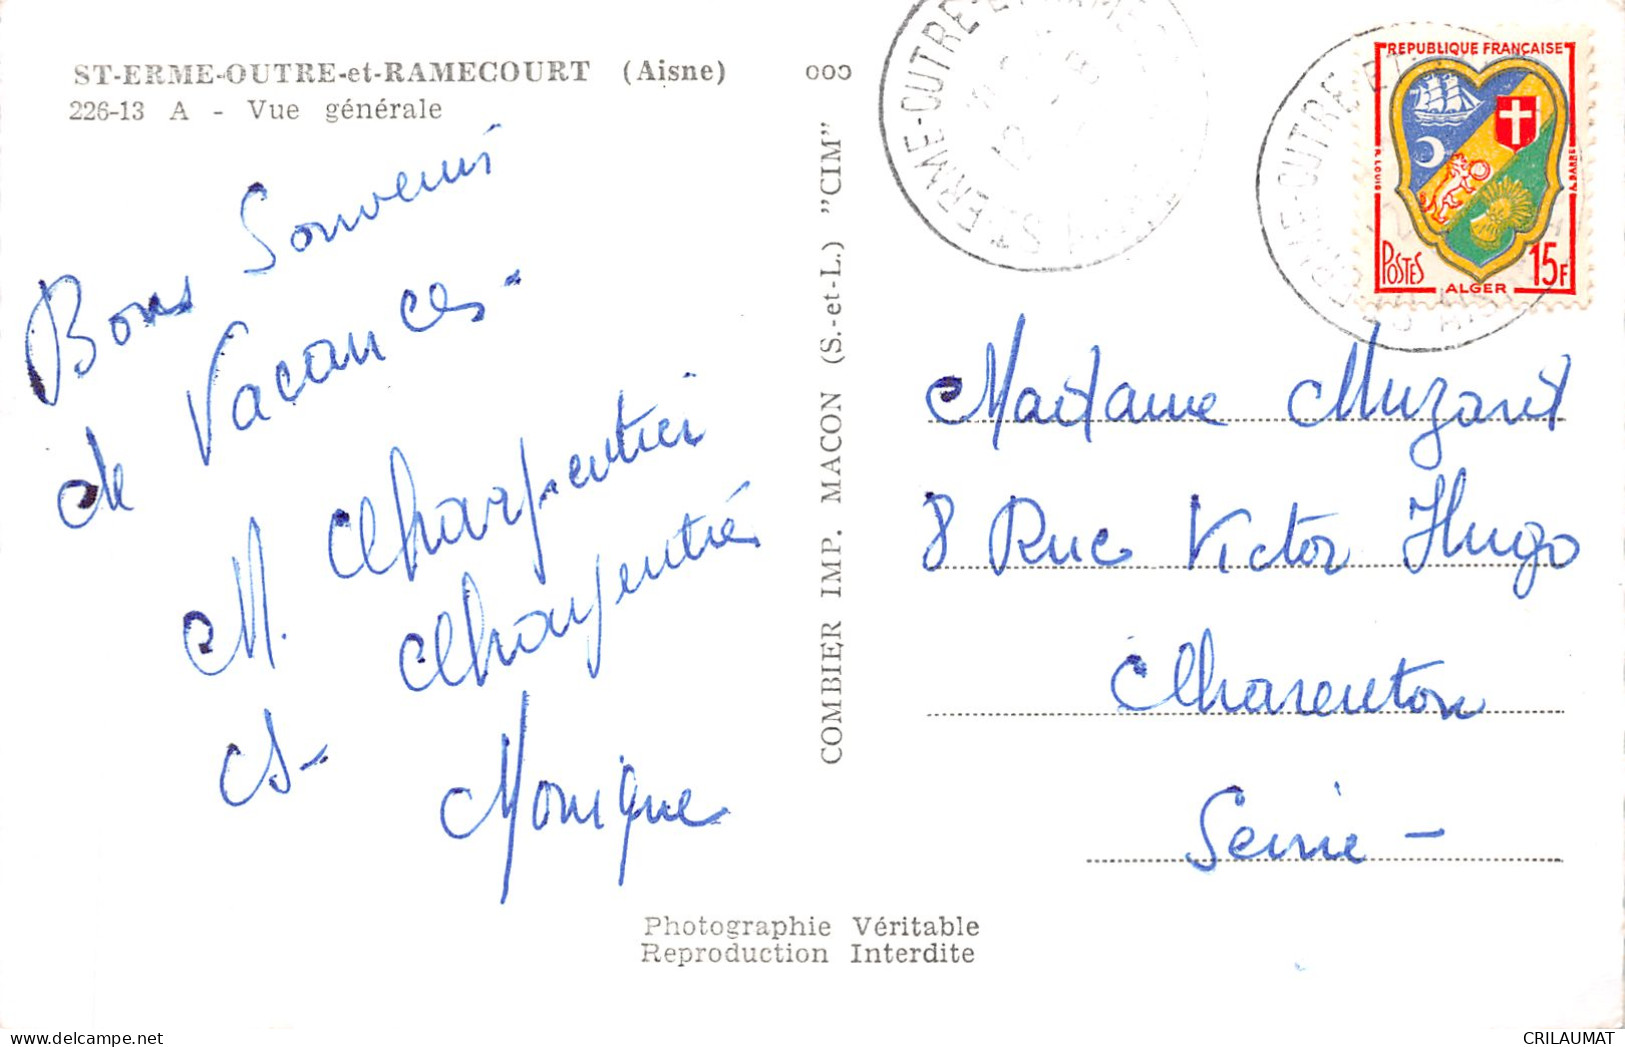 ST-ERME-OUTRE-et-RAMECOURT (Aisne)
226-13 A - Vue générale
Bons Souvenirs
de Vacances -
M. Charpentier
Charpentier
et
Monique
COMBIER IMP. MACON (S.-et-L.) "CIM"
ST ERME-OUTRE-ET
REPUBLIQUE FRANÇAISE
POSTES
15F
ALGER
Madame Muzard
8 Rue Victor Hugo
Charenton
Seine -
Photographie Véritable
Reproduction Interdite
CRILAUMAT